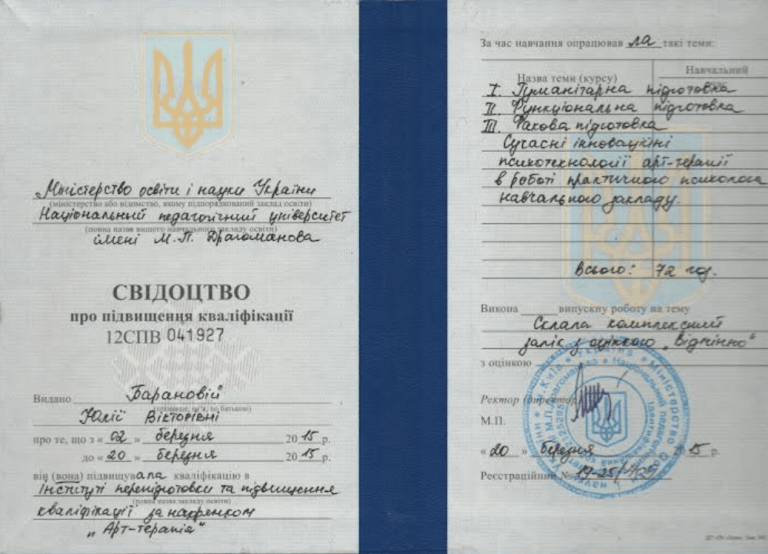 Міністерство освіти і науки України
(міністерство або відомство, якому підпорядкований заклад освіти)
Національний педагогічний університет
(повна назва вищого навчального закладу освіти)
імені М.П. Драгоманова
СВІДОЦТВО
про підвищення кваліфікації
12СПВ 041927
Видано Барановій
(прізвище, ім'я, по батькові)
Юлії Вікторівні
про те, що з « 02 » березня 2015 р.
до « 20 » березня 2015 р.
він (вона) підвищувала кваліфікацію в
Інституті перепідготовки та підвищення
(повна назва закладу освіти)
кваліфікації за напрямком
„Арт-терапія"
За час навчання опрацював ла такі теми:
Назва теми (курсу)
Навчальний
I. Гуманітарна підготовка
II. Функціональна підготовка
III. Фахова підготовка
Сучасні інноваційні
психотехнології арт-терапії
в роботі практичного психолога
навчального закладу.
Всього: 72 год.
Викона випускну роботу на тему
Склала комплексний
залік з оцінкою „Відмінно"
з оцінкою
Ректор (директор)
М.П.
« 20 » березня 2015 р.
Реєстраційний №